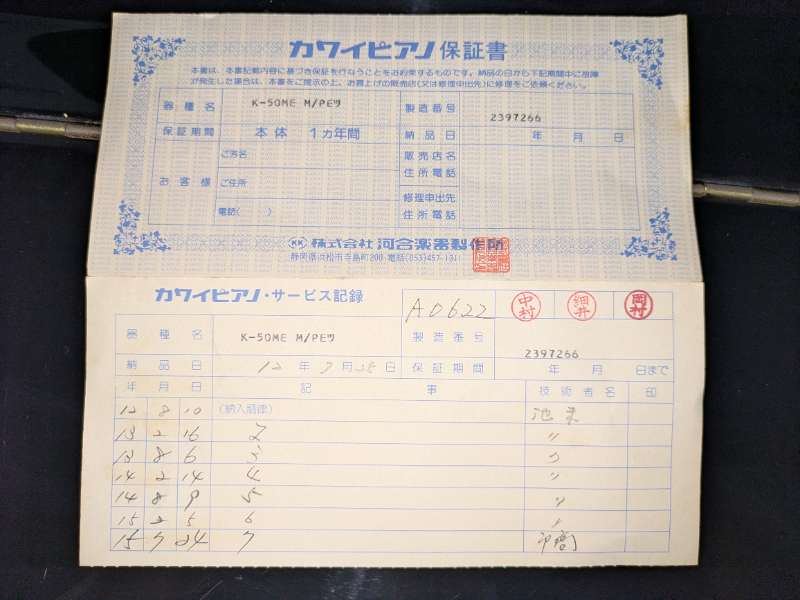 カワイピアノ 保証書
本書は、本書記載内容に基づき保証を行なうことをお約束するものです。納品の日から下記期間中に故障
が発生した場合は、本書をご提示の上、お買上げの販売店(又は修理申出先)に修理をご依頼ください。
器種名 K-50ME M/PEツ 製造番号 2397266
保証期間 本体 1ヵ年間 納品日 年 月 日
お客様 ご芳名 販売店名
住所電話
ご住所
修理申出先
電話( ) 住所電話
KK 株式会社 河合楽器製作所
静岡県浜松市寺島町200・電話(053)457-1311
カワイピアノ・サービス記録 A0622 中村 細井 岡村
器種名 K-50ME M/PEツ 製造番号 2397266
納品日 12年7月25日 保証期間 年 月 日まで
年 月 日 記事 技術者名 印
12 8 10 (納入調律)
13 2 16 2 〃
13 8 6 3 〃
14 2 14 4 〃
14 8 9 5 〃
15 2 5 6 〃
15 7 24 7